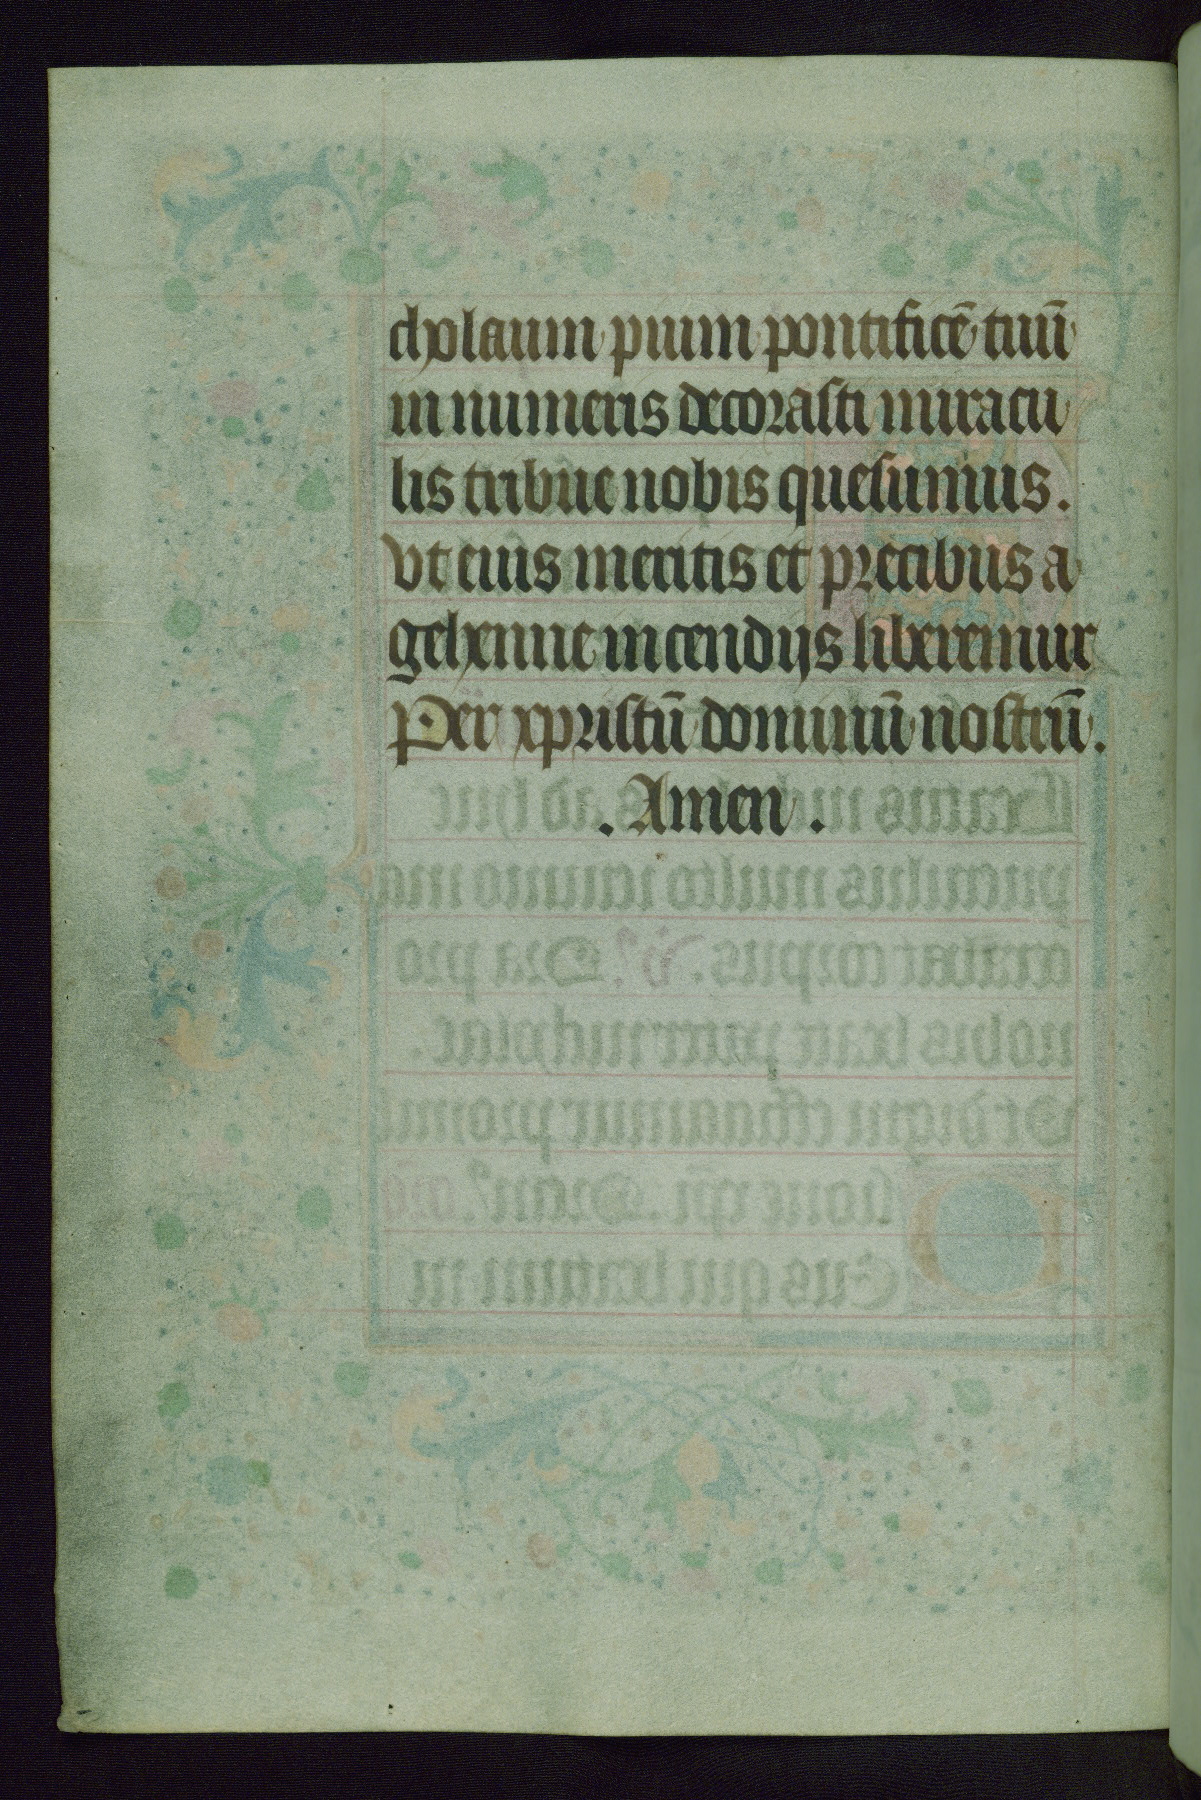 cholaum pium pontificē tuū
in numeris decorasti miracu
lis tribue nobis quesumus.
vt eius meritis et precibus a
gehenne incendijs liberemur
Per xpristū dominū nostrū.
. Amen .